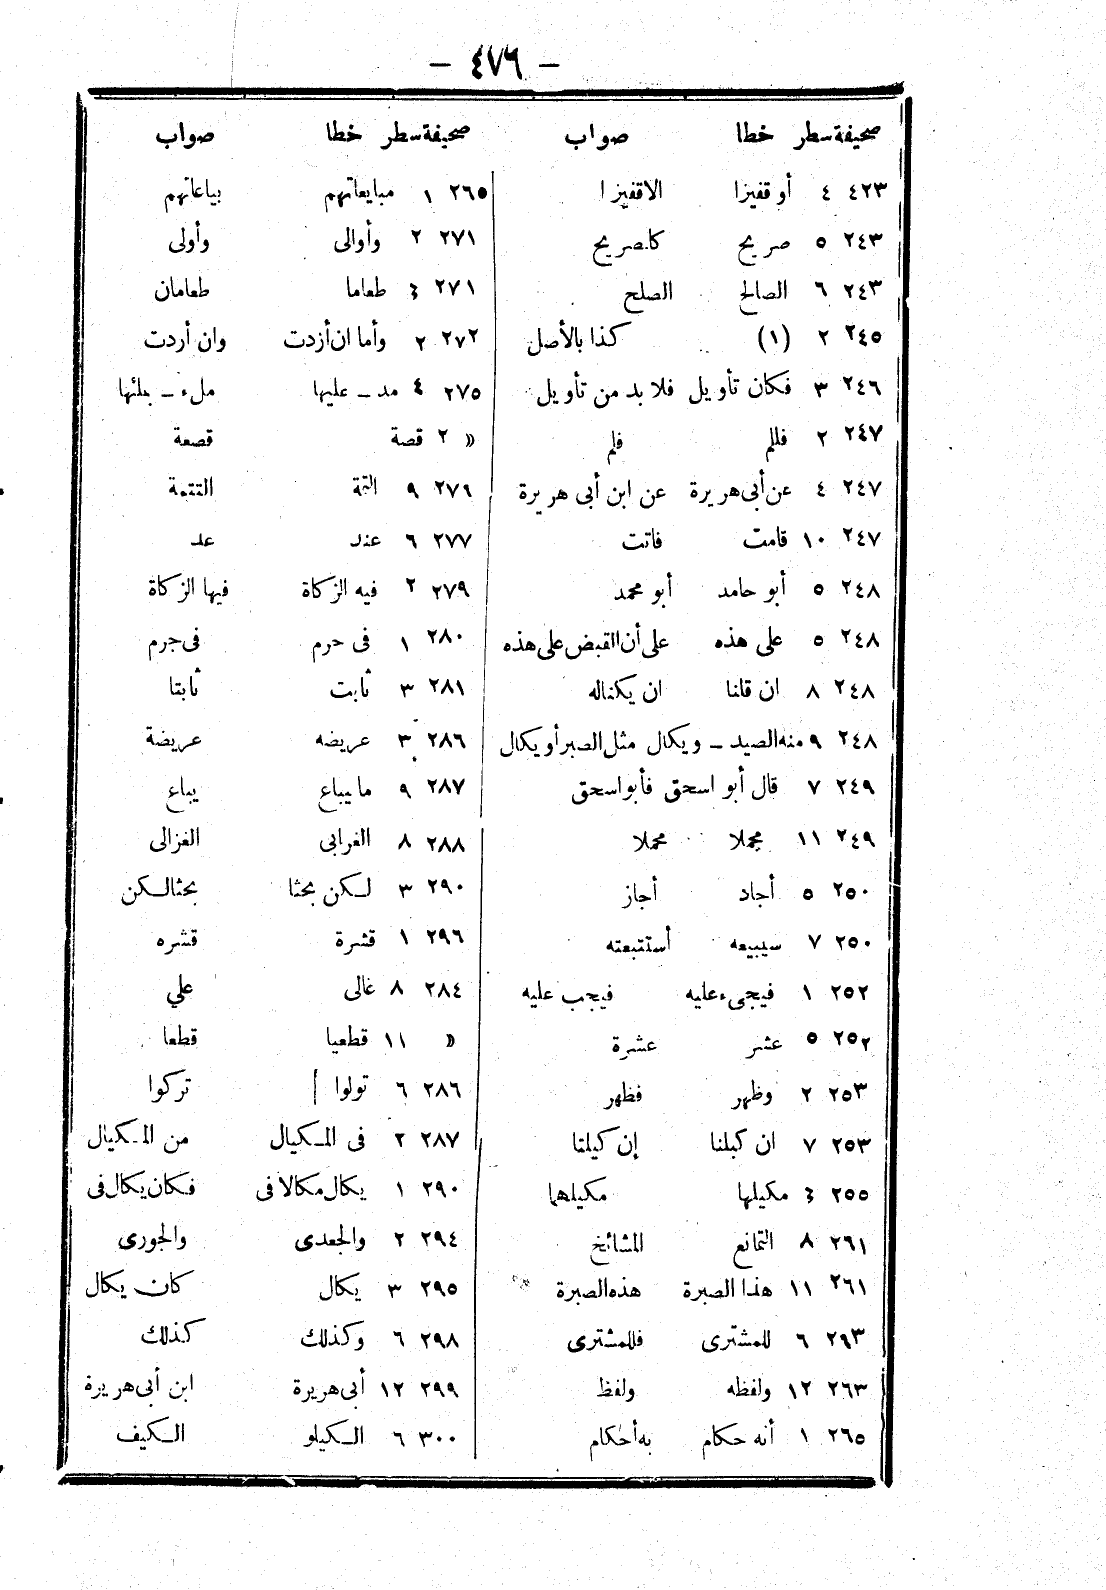 — ٤٧٦ —
صحيفة سطر خطا صواب
٤٢٣ ٤ أو قفيزا الا قفيزا
٢٤٣ ٥ صريح كالصريح
٢٤٣ ٦ الصالح الصلح
٢٤٥ ٢ (١) كذا بالأصل
٢٤٦ ٣ فكان تأويل فلا بد من تأويل
٢٤٧ ٢ فللم فلم
٢٤٧ ٤ عن أبى هريرة عن ابن أبى هريرة
٢٤٧ ١٠ قامت فاتت
٢٤٨ ٥ أبو حامد أبو محمد
٢٤٨ ٥ على هذه على أن القبض على هذه
٢٤٨ ٨ ان قلنا ان يكتاله
٢٤٨ ٩ منه الصيد ـ ويكال مثل الصبر أو يكال
٢٤٩ ٧ قال أبو اسحق فأبو اسحق
٢٤٩ ١١ مجملا محملا
٢٥٠ ٥ أجاد أجاز
٢٥٠ ٧ سيبيعه أستتبعته
٢٥٢ ١ فيجىء عليه فيجب عليه
٢٥٢ ٥ عشر عشرة
٢٥٣ ٢ وظهر فظهر
٢٥٣ ٧ ان كبلنا إن كيلتا
٢٥٥ ٤ مكيلها مكيلهما
٢٦١ ٨ التمانع المشائخ
٢٦١ ١١ هذا الصبرة هذه الصبرة
٢٩٣ ٦ للمشترى فللمشترى
٢٦٣ ١٢ ولفظه ولفظ
٢٦٥ ١ أنه حكام به أحكام
صحيفة سطر خطا صواب
٢٦٥ ١ مبايعاتهم بياعاتهم
٢٧١ ٢ وأوالى وأولى
٢٧١ ٤ طعاما طعامان
٢٧٢ ٢ وأما ان أزدت وان أردت
٢٧٥ ٤ مد ـ عليها ملء ـ بملئها
» ٢ قصة قصعة
٢٧٦ ٩ التمة التتمة
٢٧٧ ٦ عند عد
٢٧٩ ٢ فيه الزكاة فيها الزكاة
٢٨٠ ١ فى حرم فى جرم
٢٨١ ٣ ثابت ثابتا
٢٨٦ ٣ عريضه عريضة
٢٨٧ ٩ ما يباع يباع
٢٨٨ ٨ الغرابى الغزالى
٢٩٠ ٣ لكن بحثا بحثا لكن
٢٩٦ ١ قشرة قشره
٢٨٤ ٨ غالى علي
» ١١ قطعيا قطعا
٢٨٦ ٦ تولوا تركوا
٢٨٧ ٢ فى المكيال من المكيال
٢٩٠ ١ يكال مكالا فى فكان يكال فى
٢٩٤ ٢ والجعدى والجورى
٢٩٥ ٣ يكال كان يكال
٢٩٨ ٦ وكذلك كذلك
٢٩٩ ١٢ أبى هريرة ابن أبى هريرة
٣٠٠ ٦ الكيلو الكيف